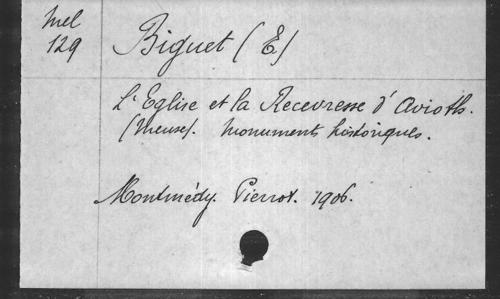 Mel
129
Biguet (E)
L'Eglise et la Recevresse d'Avioth.
(Meuse). Monuments historiques.
Montmédy. Pierrot. 1906.